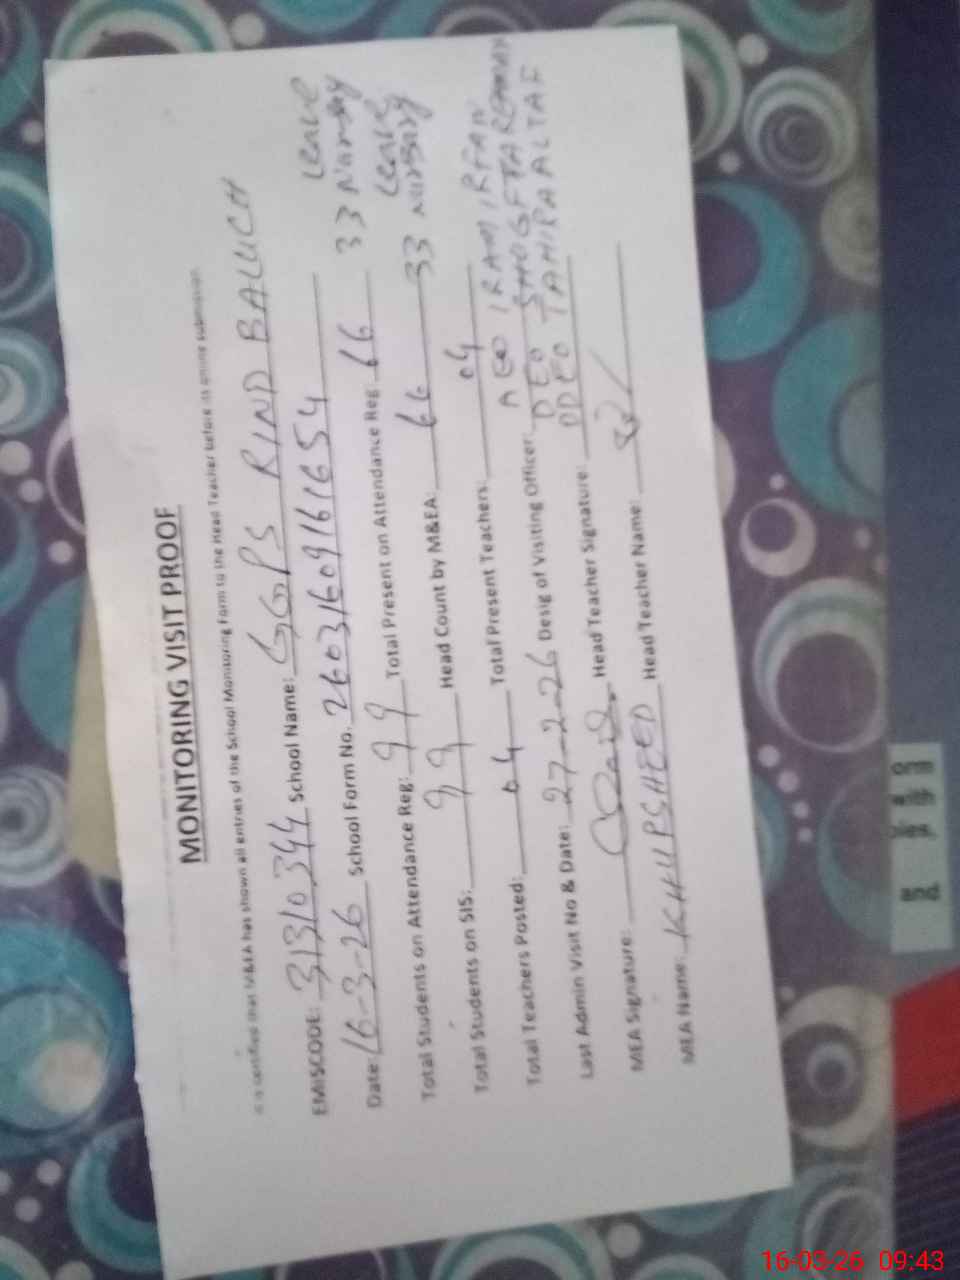 MONITORING VISIT PROOF
It is certified that M&EA has shown all entries of the School Monitoring Form to the Head Teacher before its online submission.
EMISCODE: 31310344 School Name: GGPS RIND BALUCH
Date: 16-3-26 School Form No. 26031609161654
Total Students on Attendance Reg: 99 Total Present on Attendance Reg: 66 33 Leave Nursery
Total Students on SIS: 99 Head Count by M&EA: 66 33 Leave Nursery
Total Teachers Posted: 04 Total Present Teachers: 04
Last Admin Visit No & Date: 27-2-26 Desig of Visiting Officer: AEO IRAM IRFAN
DEO SHUGFTA REHMAN
DDEO TAHIRA ALTAF
MEA Signature: Head Teacher Signature:
MEA Name: KHURSHEED Head Teacher Name:
orm
with
and
16-03-26 09:43